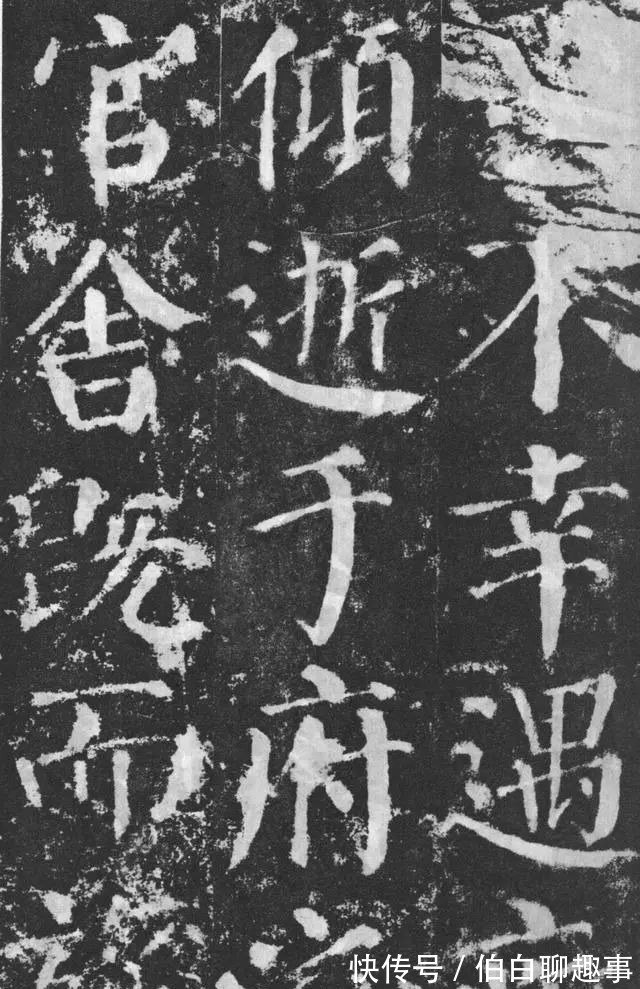 不幸遇
傾逝于府
官舍既而
快传号 / 伯白聊趣事